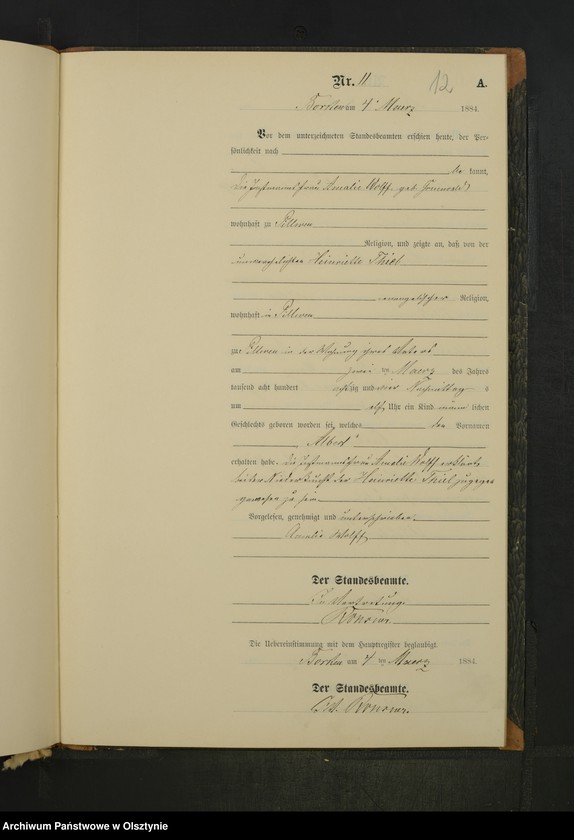 Nr. 11 12. A.
am 4 Maerz 1884.
Vor dem unterzeichneten Standesbeamten erschien heute, der Per-
sönlichkeit nach
be kannt,
die Instmannsfrau Amalie Wolff geb.
wohnhaft zu
Religion, und zeigte an, daß von der
unverehelichten Heinriette Thiel
evangelischer Religion,
wohnhaft in
zu in der Wohnung ihres Vaters
am zwei ten Maerz des Jahres
tausend acht hundert achtzig und vier Nachmittag s
um elf Uhr ein Kind männ lichen
Geschlechts geboren worden sei, welches den Vornamen
"Albert"
erhalten habe. Die Instmannsfrau Amalie Wolff erklärte
bei der Niederkunft der Heinriette Thiel zugegen
gewesen zu sein.
Vorgelesen, genehmigt und unterschrieben.
Amalie Wolff
Der Standesbeamte.
In Vertretung
Die Uebereinstimmung mit dem Hauptregister beglaubigt.
am 4 ten Maerz 1884.
Der Standesbeamte.
Archiwum Państwowe w Olsztynie